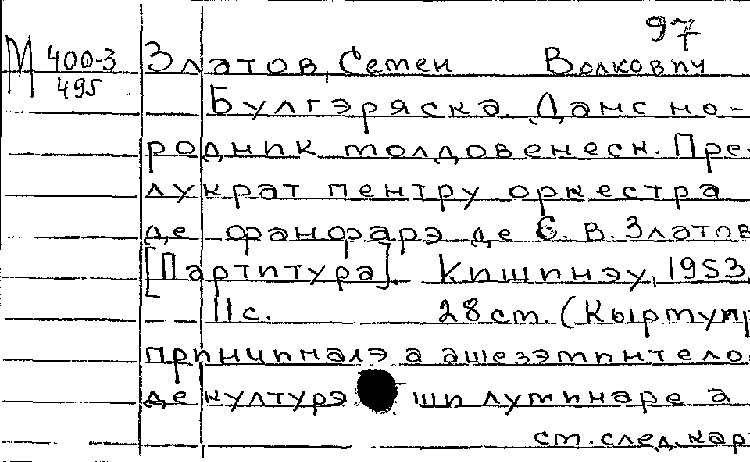 97
М 400-3
495
Златов, Семен Волкович
Булгэряска. Данс но-
родник молдовенеск. Пре-
лукрат пентру оркестра
де фанфарэ де С. В. Златов
[Партитура]. Кишинэу, 1953.
11 с. 28 см. (Кыртуир
принчипалэ а ашезэминтело
де културэ ши луминаре а
см. след. кар